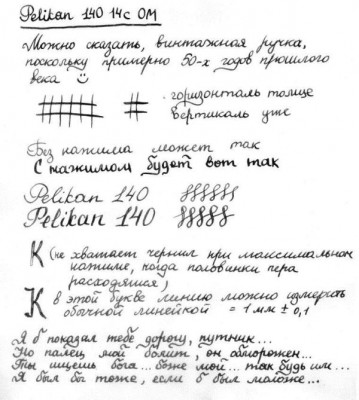 Pelikan 140 14с ОМ
Можно сказать, винтажная ручка,
поскольку примерно 50-х годов прошлого
века
горизонталь толще
вертикаль уже
Без нажима может так
С нажимом будет вот так
Pelikan 140
Pelikan 140
К (не хватает чернил при максимальном
нажиме, когда половинки пера
расходятся)
К в этой букве линию можно измерить
обычной линейкой = 1 мм ± 0,1
Я б показал тебе дорогу, путник...
Но палец мой болит, он обморожен...
Ты ищешь бога... боже мой... так будь им...
Я был бы тоже, если б был моложе...